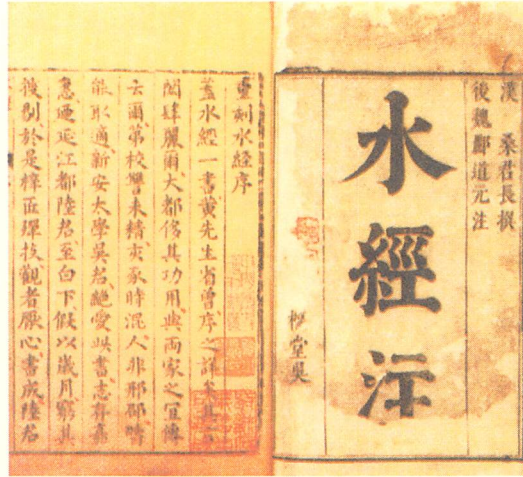 漢 桑君長撰
後魏酈道元注
水經注
堂吳
重刻水經序
蓋水經一書黃先生省曾序之詳矣其
閎肆麗爾大都侈其功用與兩家之宜傳
云爾第校讐未精亥豕時混人非邢邵疇
能取適新安太學吳君愛此書志存嘉
惠迺延江都陸君至白下假以歲月窮其
後剞於是梓匠殫技觀者厭心書成陸君